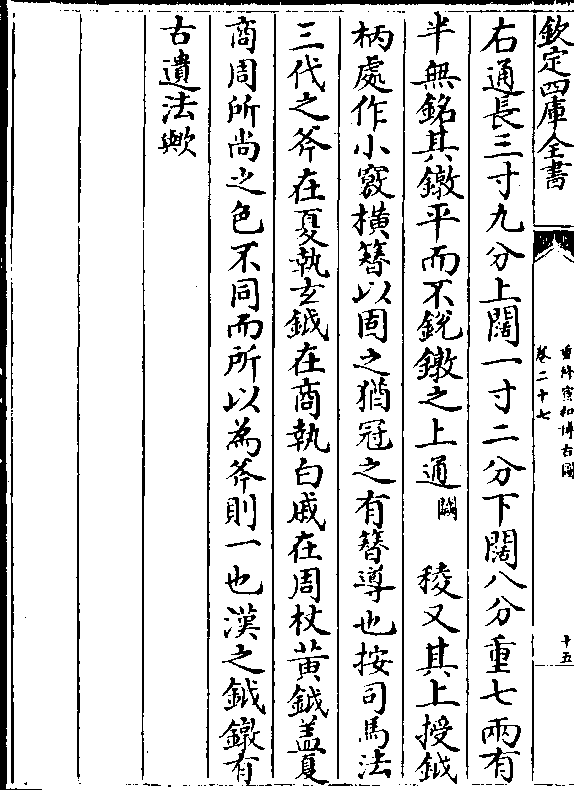 欽定四庫全書
重修宣和博古圖
卷二十七
十五
右通長三寸九分上闊一寸二分下闊八分重七兩有
半無銘其鐓平而不銳鐓之上通闕稜又其上授鉞
柄處作小竅橫簪以固之猶冠之有簪導也按司馬法
三代之斧在夏執玄鉞在商執白戚在周杖黃鉞盖夏
商周所尚之色不同而所以為斧則一也漢之鉞鐓有
古遺法歟